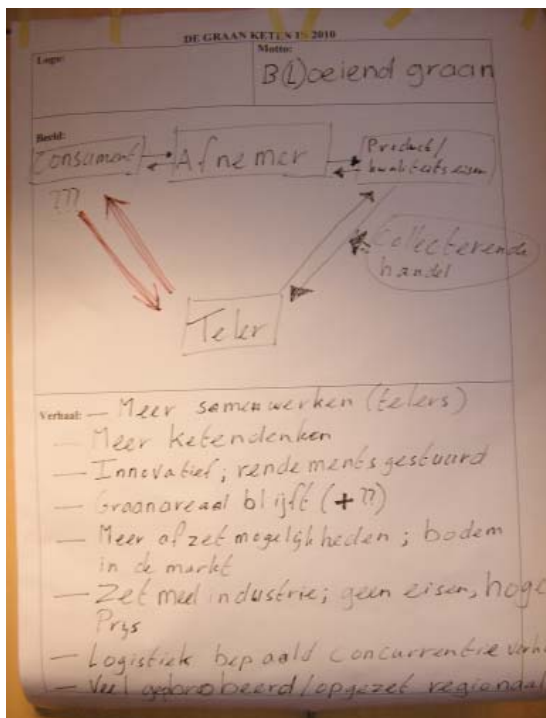 DE GRAAN KETEN IN 2010
Logo:
Motto:
B(L)oeiend graan
Beeld:
Consument
Afnemer
Product/
kwaliteitseisen
???
Collecterende
handel
Teler
Verhaal: — Meer samenwerken (telers)
— Meer ketendenken
— Innovatief; rendementsgestuurd
— Graanareaal blijft (+??)
— Meer afzetmogelijkheden; bodem
in de markt
— Zetmeelindustrie; geen eisen, hoge
Prijs
— Logistiek bepaald concurrentieverh
— Veel geprobeerd/opgezet regionaal